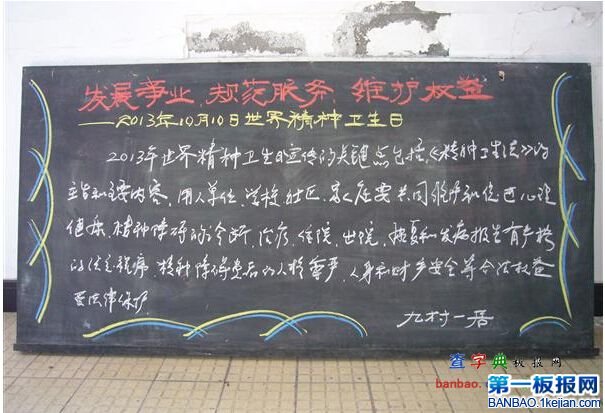 发展事业 规范服务 维护权益
——2013年10月10日世界精神卫生日
2013年世界精神卫生日宣传的关键点包括《精神卫生法》的
主旨和主要内容，用人单位、学校、社区、家庭要共同维护和促进心理
健康，精神障碍的诊断、治疗、住院、出院、康复和发病报告有严格
的法定程序，精神障碍患者的人格尊严、人身和财产安全等合法权益
受法律保护。
九村一居
查字典 板报网
banbao.
第一板报网
BANBAO.1kejian.com